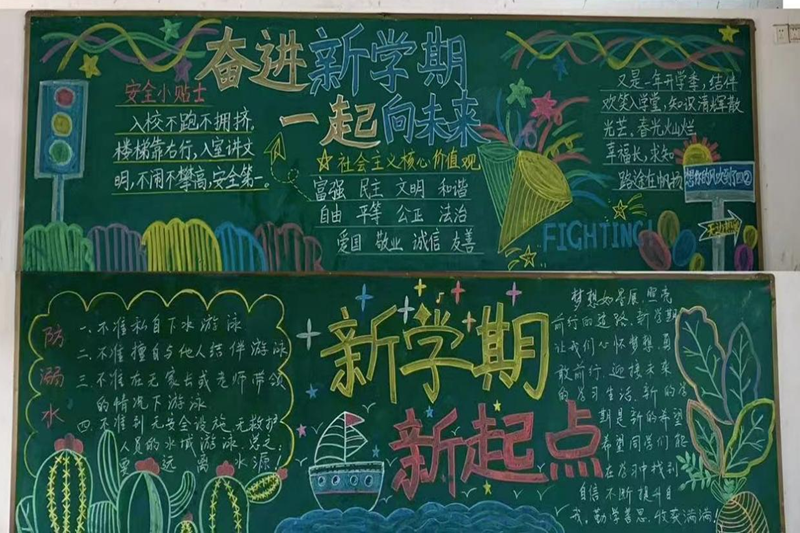 奋进新学期
一起向未来
安全小贴士
入校不跑不拥挤,
楼梯靠右行,入室讲文
明,不闹不攀高,安全第一。
社会主义核心价值观
富强 民主 文明 和谐
自由 平等 公正 法治
爱国 敬业 诚信 友善
又是一年开学季,结伴
欢笑入学堂,知识清辉散
光芒,春光火灿烂
幸福长,求知
路途在帆扬
FIGHTING!
新学期
新起点
防溺水
一、不准私自下水游泳
二、不准擅自与他人结伴游泳
三、不准在无家长或老师带领
的情况下游泳
四、不准到无安全设施、无救护
人员的水域游泳,总之,
要远离水源。
梦想如星辰,照亮
前行的道路,新学期
让我们心怀梦想勇
敢前行,迎接未来
的学习生活,新的学
期是新的希望
希望同学们能
在学习中找到
自信不断提升自
我,勤学善思,收获满满!